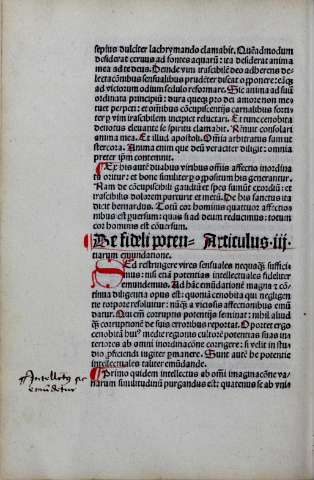 sepius dulciter lachrymando clamabit. Quẽadmodum
desiderat ceruus ad fontes aquarũ: ita desiderat anima
mea ad te deus. Deinde vim irascibilẽ deo adherens de-
lectacõnibus sensualibus prudẽter discat opponere: eãqȝ
ad victorum odium sedulo reformare. Sic anima ad suũ
ordinata principiũ: dura queqȝ pro dei amore non me-
tuet perpeti: et omibus cõcupiscibilium carnalibus forti-
ter ꝑ vim irascibilem incipiet reluctari. Et tunc cenobita
deuotus eleuante se spiritu clamabit. Rẽnuit consolari
anima mea. Et illud apostoli. Om̃ia arbitratus sum vt
stercora. Anima enim que deũ veraciter diligit: omnia
preter ip̃m contemnit.
Ex his autẽ duabus viribus om̃is affectio inordina
ta oritur: et bone similiter ꝑ opposcum his generantur.
Nam de cõcupiscibili gaudiũ et spes sumũt exordiũ: et
irascibilis dolorem parturit et metũ. De his sanctus ita
dicit bernardus. Totũ cor hominis quattuor affectio
nibus est ꝗuersum: quas si ad deum reducimus: totum
cor hominis est ꝗuersum.
De fideli poten- Articulus .iij.
tiarum emundatione.
SEd restringere vires sensuales nequaqȝ suffici-
mus: nisi etiã potentias intellectuales fideliter
emundemus. Ad hãc emũdationẽ magna ⁊ cõ-
tinua diligentia opus est: quoniã cenobita qui negligen
tie torpore resoluitur: nũqȝ a viciosis affectionibus emũ
datur. Qui em̃ corruptis potentijs seminat: nihil aliud
qȝ corruptionẽ de suis erroribus reportat. Oportet ergo
cenobitã hui᷒ medie regionis cultorẽ potentias suas in-
teriores ab omni inordinacõne corrigere: si velit in stu-
dio ꝓficiendi iugiter ꝑmanere. Sunt autẽ he potentie
intellectuales taliter emũdande.
Primo quidem intellectus ab om̃i imaginacõne va-
narum similitudinũ purgandus est: quatenus se ab vniẜ
Intellectꝰ
emũdetur